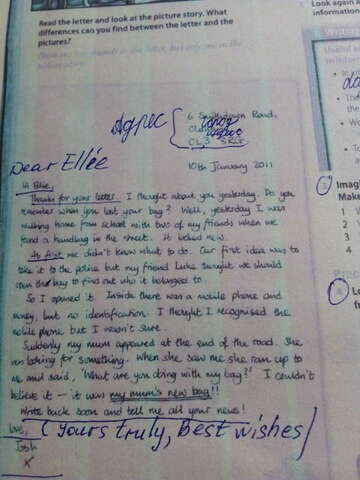 Read the letter and look at the picture story. What
differences can you find between the letter and the
pictures?
Look again a
information
Адрес
6 Smithdown Road,
CL3
10th January 2011
Dear Ellée
Hi Ellie,
Thanks for your letter. I thought about you yesterday. Do you
remember when you lost your bag? Well, yesterday I was
walking home from school with two of my friends when we
found a handbag in the street. It looked new.
At first we didn't know what to do. Our first idea was to
take it to the police but my friend Luke thought we should
open the bag to find out who it belonged to.
So I opened it. Inside there was a mobile phone and
money, but no identification. I thought I recognised the
mobile phone but I wasn't sure.
Suddenly my mum appeared at the end of the road. She
was looking for something. When she saw me she ran up to
me and said, 'What are you doing with my bag?!' I couldn't
believe it – it was my mum's new bag!!
Write back soon and tell me all your news!
Love, (Yours truly, Best wishes)
Josh
X
Imag
Make
1
2
3
4